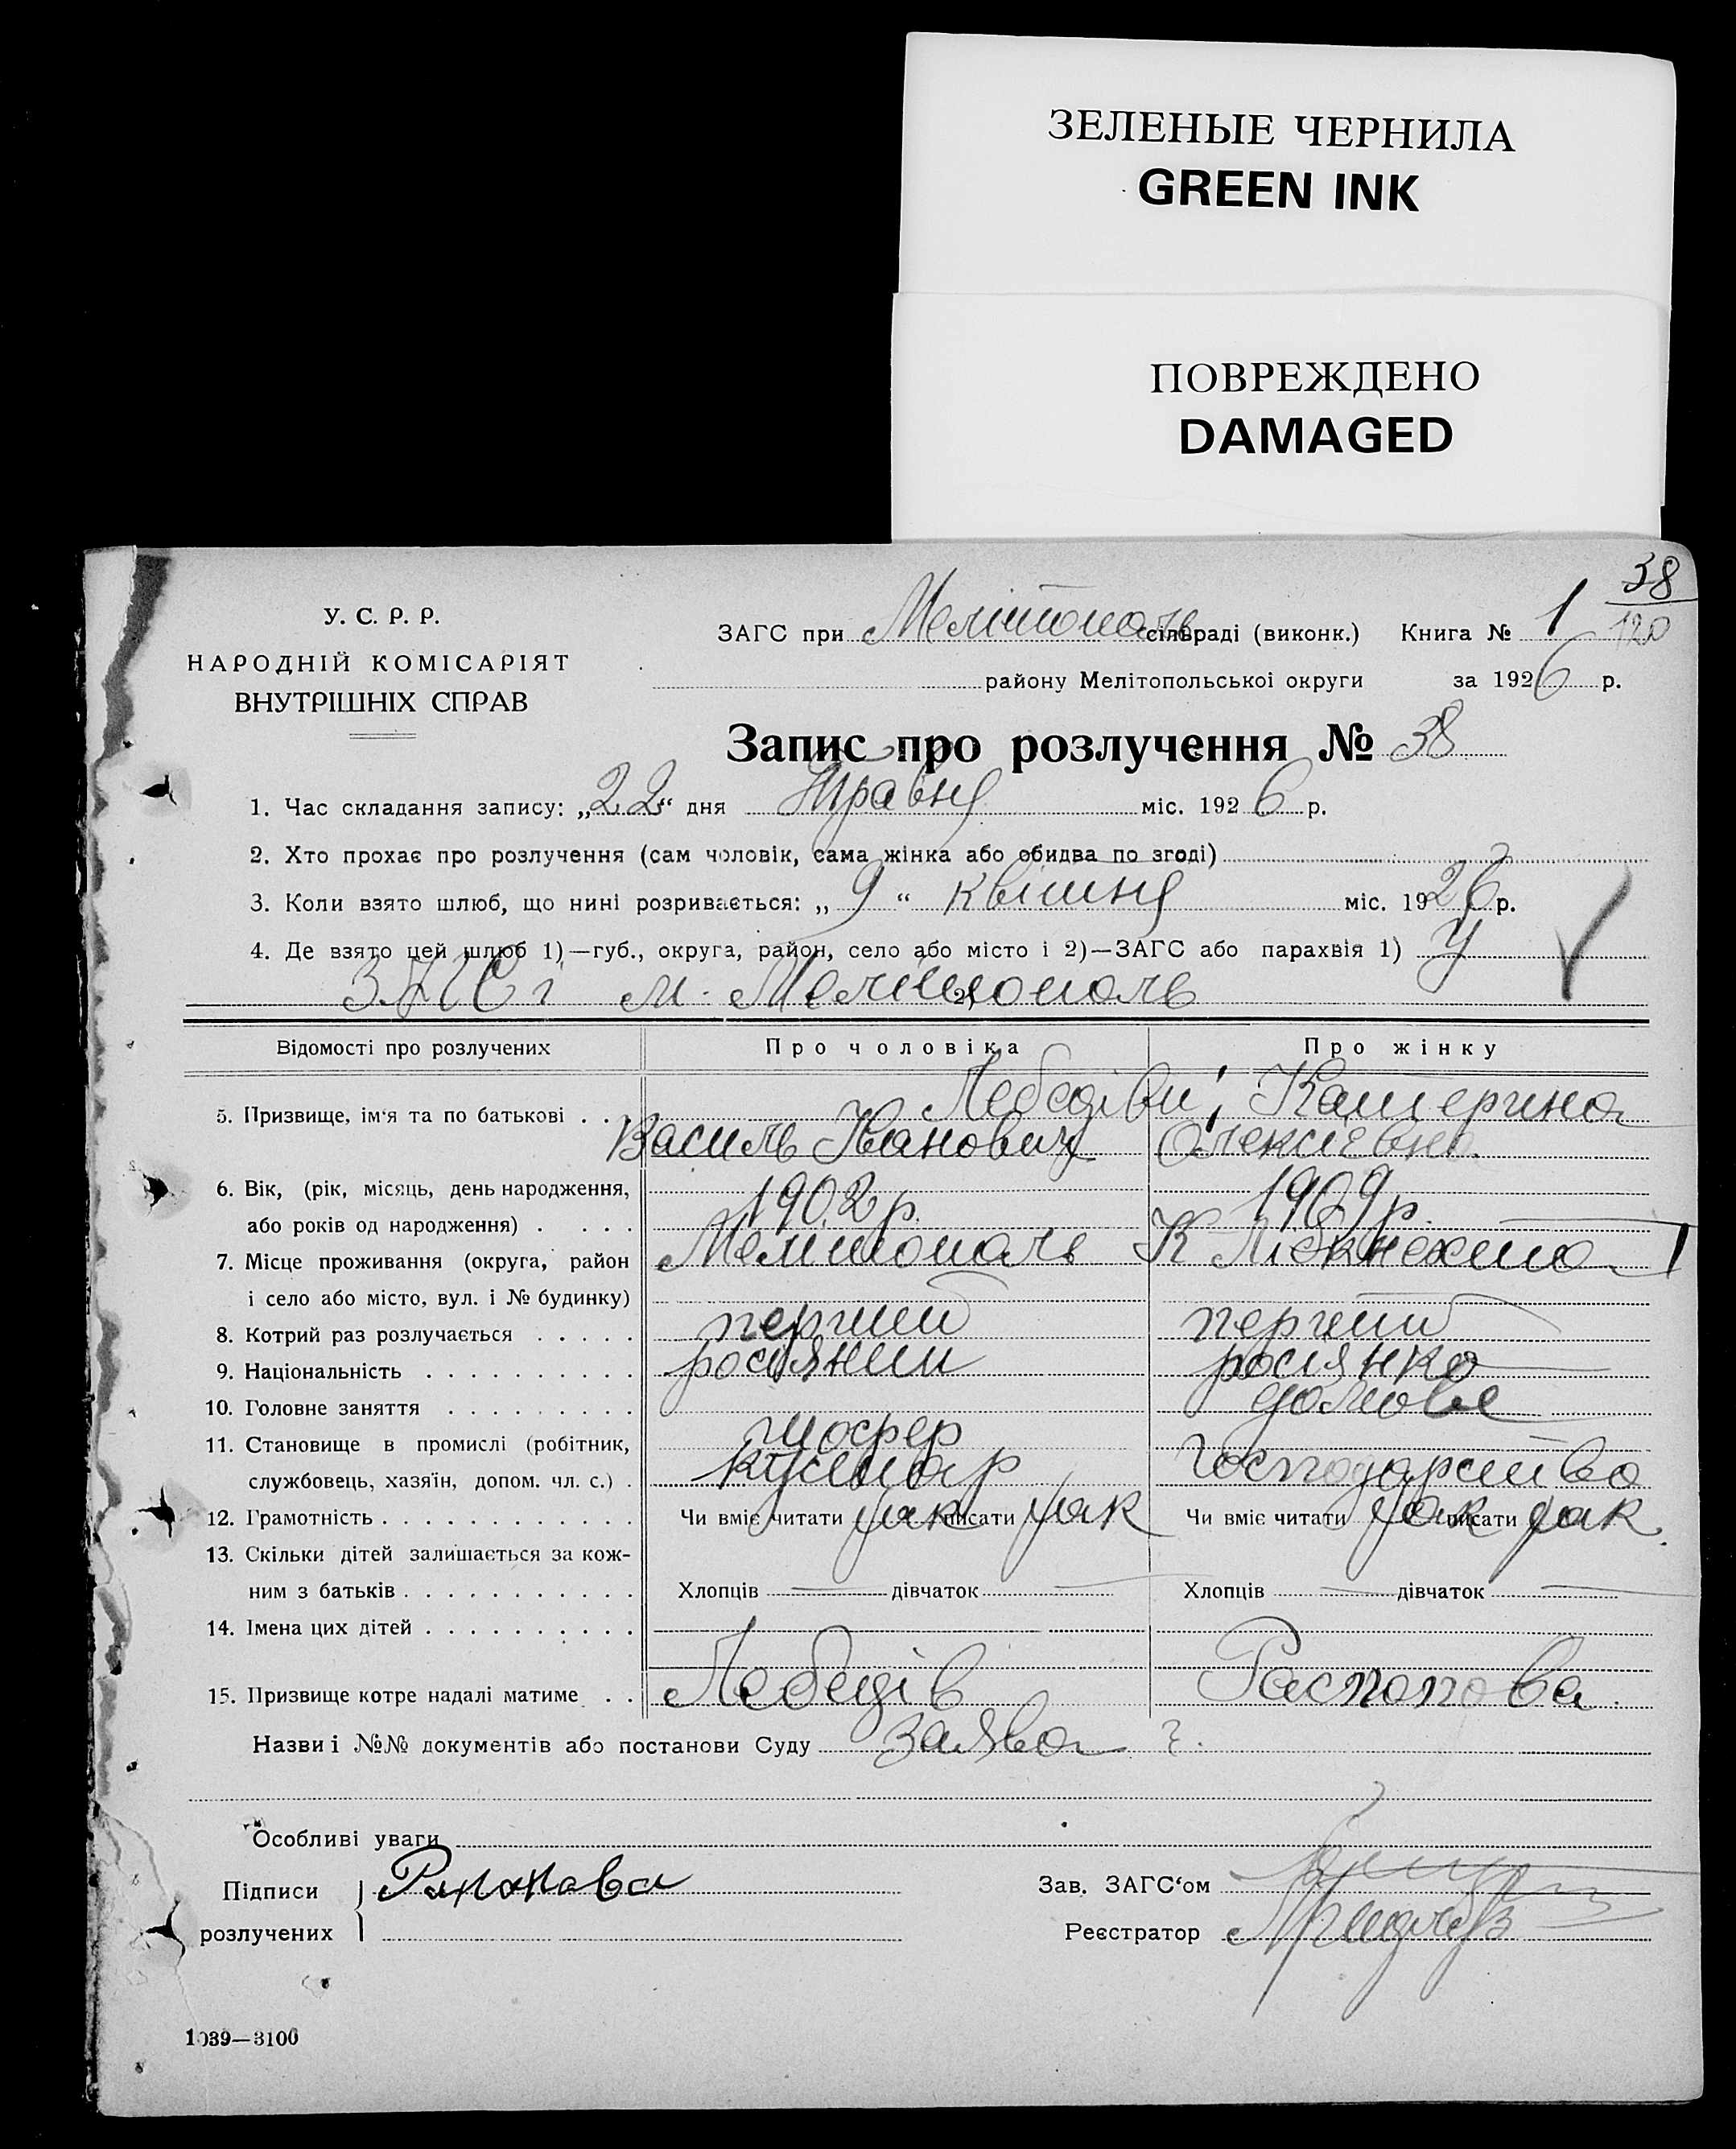 ЗЕЛЕНЫЕ ЧЕРНИЛА
GREEN INK
ПОВРЕЖДЕНО
DAMAGED
38
120
У. С. Р. Р.
НАРОДНІЙ КОМІСАРІЯТ
ВНУТРІШНІХ СПРАВ
ЗАГС при Мелітополь сільраді (виконк.) Книга № 1
району Мелітопольської округи за 1926 р.
Запис про розлучення № 38
1. Час складання запису: „22“ дня Травня міс. 1926 р.
2. Хто прохає про розлучення (сам чоловік, сама жінка або обидва по згоді)
3. Коли взято шлюб, що нині розривається: „9“ квітня міс. 1926 р.
4. Де взято цей шлюб 1)—губ., округа, район, село або місто і 2)—ЗАГС або парахвія 1) У
ЗАГСі м. Мелітополь 2)
Відомості про розлучених Про чоловіка Про жінку
5. Призвище, ім'я та по батькові . . Лебедіви, Катерина
Василь Іванович Олексієвна
6. Вік, (рік, місяць, день народження,
або років од народження) . . . . 1902 р. 1909 р.
7. Місце проживання (округа, район Мелітополь К Лібкнехта 1
і село або місто, вул. і № будинку)
8. Котрий раз розлучається . . . . . перший перший
9. Національність . . . . . . . . . . росіянин росіянка
10. Головне заняття . . . . . . . . . домове
11. Становище в промислі (робітник, шофер
службовець, хазяїн, допом. чл. с.) . кустар господарство
12. Грамотність . . . . . . . . . . . . Чи вміє читати так писати так Чи вміє читати так писати так
13. Скільки дітей залишається за кож-
ним з батьків . . . . . . . . . . . Хлопців — дівчаток — Хлопців — дівчаток —
14. Імена цих дітей . . . . . . . . . .
15. Призвище котре надалі матиме . . Лебедів Распопова
Назви і №№ документів або постанови Суду заява
Особливі уваги
Підписи Зав. ЗАГС‘ом
розлучених Реєстратор
1039—3100